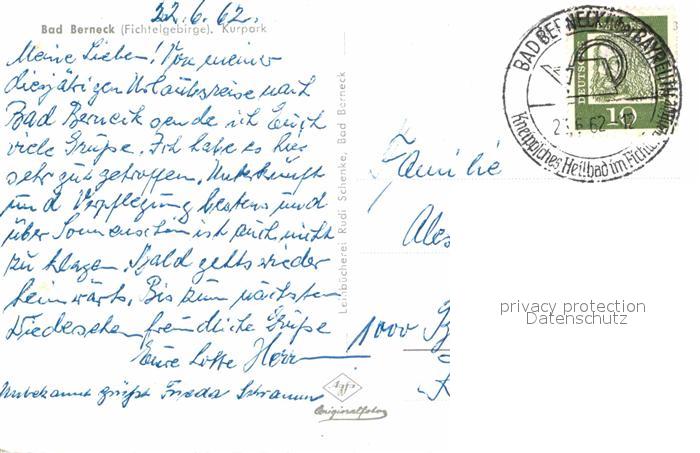 22.6.62.
Bad Berneck (Fichtelgebirge). Kurpark
Meine Lieben! Von meiner
diesjährigen Urlaubsreise nach
Bad Berneck sende ich Euch
viele Grüße. Ich habe es hier
sehr gut getroffen. Unterkunft
und Verpflegung bestens und
über Sonnenschein ist auch nicht
zu klagen. Bald gehts wieder
heimwärts. Bis zum nächsten
Wiedersehen freundliche Grüße
Eure Lotte Herr
Unbekannt grüßt Frieda Schramm
Leinbücherei Rudi Schenke, Bad Berneck
Originalfoto
Familie
Ales
1000 B
BAD BERNECK BAYREUTH
6.62-12
Kneippsches Heilbad im Ficht
DEUTSCHE
10
privacy protection
Datenschutz